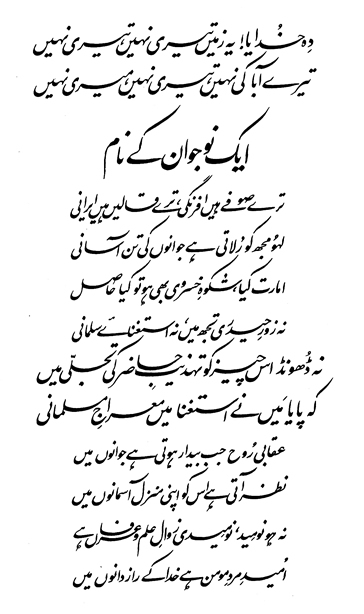 دِہ خُدایا! یہ زمیں تیری نہیں، تیری نہیں
تیرے آبا کی نہیں، تیری نہیں، میری نہیں
ایک نوجوان کے نام
ترے صوفے ہیں افرنگی، ترے قالیں ہیں ایرانی
لہو مجھ کو رُلاتی ہے جوانوں کی تن آسانی
امارت کیا، شکوہِ خسروی بھی ہو تو کیا حاصل
نہ زورِ حیدری تجھ میں، نہ استغنائے سلمانی
نہ ڈھونڈ اس چیز کو تہذیبِ حاضر کی تجلّی میں
کہ پایا میں نے استغنا میں معراجِ مسلمانی
عقابی رُوح جب بیدار ہوتی ہے جوانوں میں
نظر آتی ہے اس کو اپنی منزل آسمانوں میں
نہ ہو نومید، نومیدی زوالِ علم و عرفاں ہے
اُمیدِ مردِ مومن ہے خدا کے راز دانوں میں